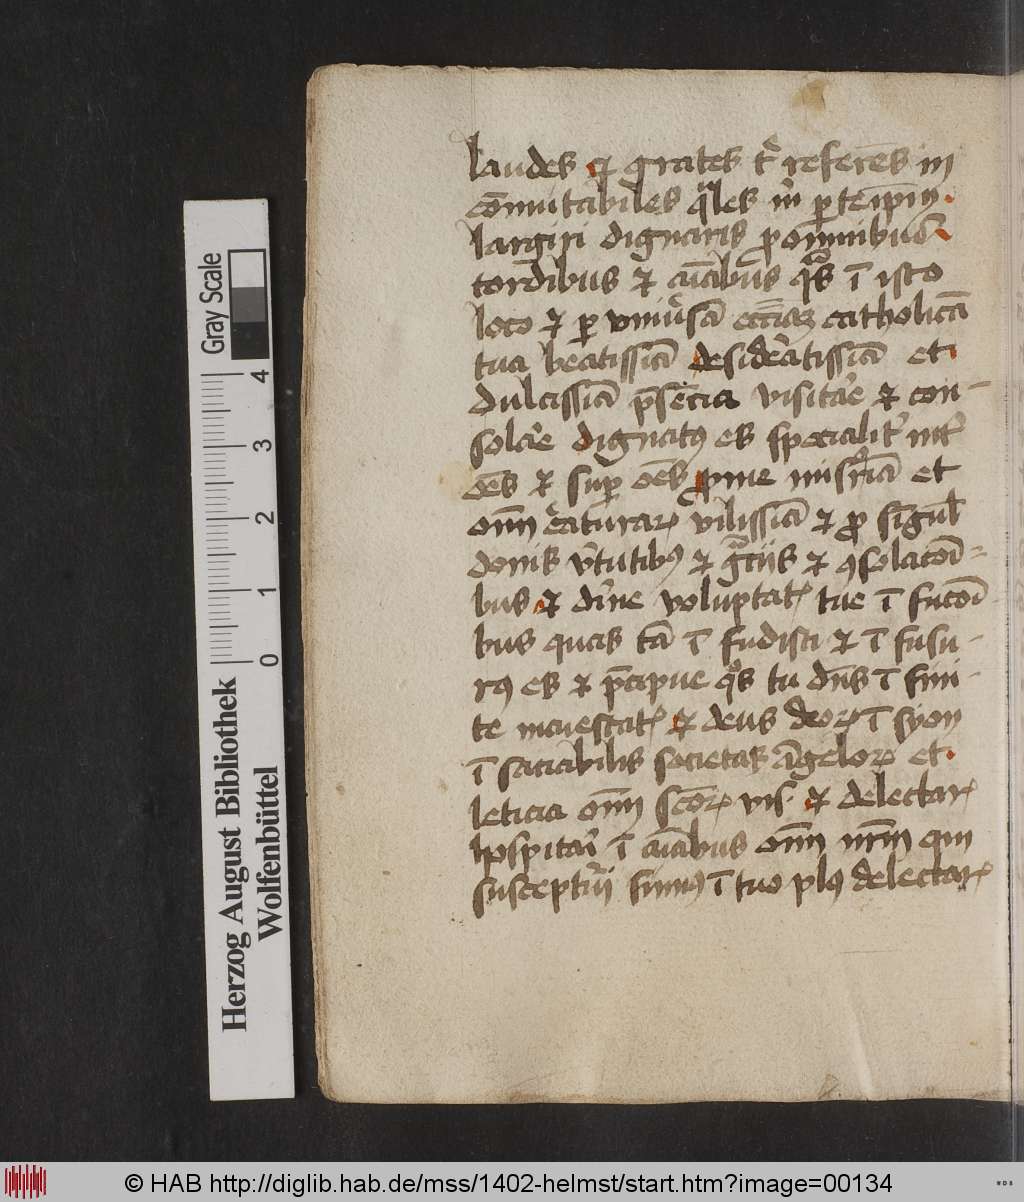 laudes et grates t' referens in
comutabiles q̄les m̄ p te ip̄m
largiri dignaris p omnibus
cordibus et aīabus q̄s ī isto
loco et p vniu'sā eccȩ̄ catholicā
tua beatissīa desid'atissīa et
dulcissīa p̄sēcia visitar'e et con
solar'e dignatꝰ es specialit' int'
oēs et sup oēs p me mis'ria et
om̄ c'aturarꝫ vilissīa et p singul'
donis v'tutibꝰ et gr̄ciis et ꝯsolacōi
bus et d'ine voluptat' tue ī fucōi
bus quas tā ī fudisti et ī fusu
rꝰ es et p̄cipue q̄s tu dn̄s ī fini
te maiestat' et deus deorꝫ ī syon
ī saciabilis societas āgelorꝫ et
leticia om̄ sc̄orꝫ vis' et delectar'
hospitari ī aīabus om̄ nr̄m qui
suscepturi sumꝰ ī tuo plꝰ delectar'
Gray Scale
4
3
2
1
0
Herzog August Bibliothek
Wolfenbüttel
© HAB http://diglib.hab.de/mss/1402-helmst/start.htm?image=00134